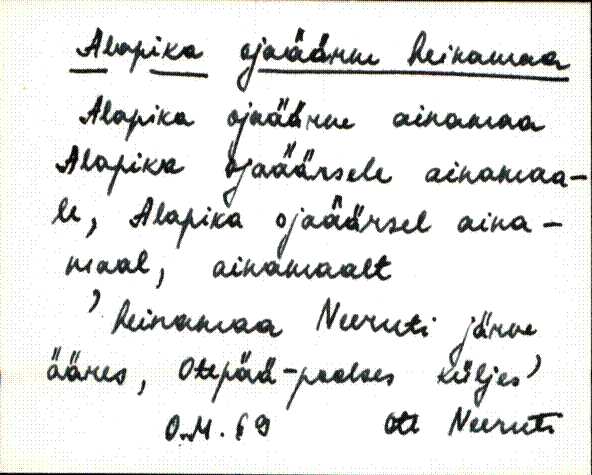 Alapika ojaäärne heinamaa
Alapika ojaäärne ainamaa
Alapika ojaäärsele ainamaa-
le, Alapika ojaäärsel aina-
maal, ainamaalt
'heinamaa Neeruti järve
ääres, Otepää-poolses küljes'
O.M. 69 Ote Neeruti